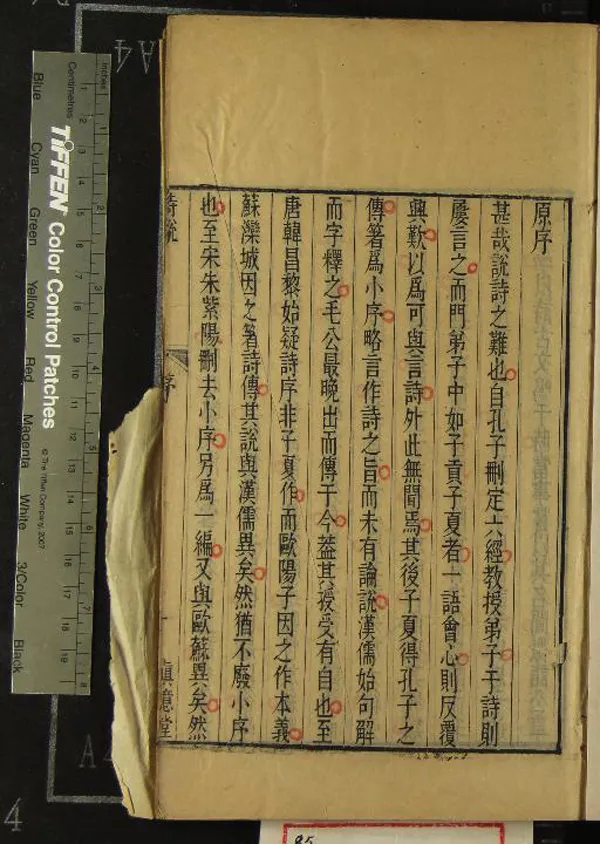 原序
甚哉說詩之難也自孔子刪定六經教授弟子于詩則
屢言之而門弟子中如子貢子夏者一語會心則反覆
興歎以爲可與言詩外此無聞焉其後子夏得孔子之
傳箸爲小序略言作詩之旨而未有論說漢儒始句解
而字釋之毛公最晚出而傳于今葢其授受有自也至
唐韓昌黎始疑詩序非子夏作而歐陽子因之作本義
蘇灤城因之箸詩傳其說與漢儒異矣然猶不廢小序
也至宋朱紫陽刪去小序另爲一編又與歐蘇異矣然
詩說
序
一
眞意堂
Inches
Centimetres
1
2
3
4
5
6
7
8
1
2
3
4
5
6
7
8
9
10
11
12
13
14
15
16
17
18
19
TIFFEN Color Control Patches
© The Tiffen Company, 2007
Blue
Cyan
Green
Yellow
Red
Magenta
White
3/Color
Black
A4
4
85